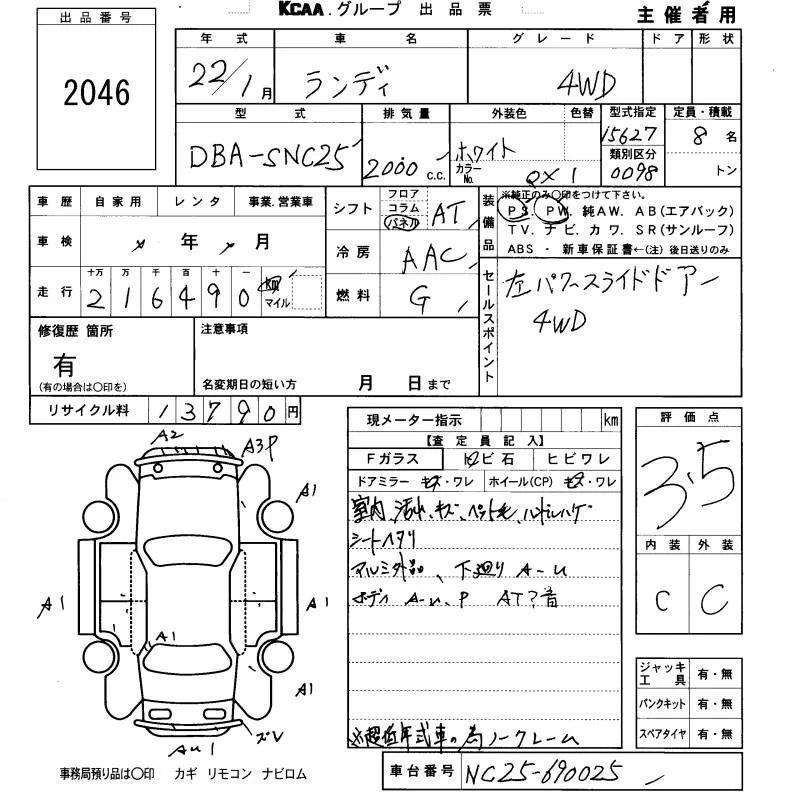 KCAA.グループ 出品票
主催者用
出品番号
2046
年式 車名 グレード ドア 形状
22/1月 ランディ 4WD
型式 排気量 外装色 色替 型式指定 定員・積載
DBA-SNC25 2000 c.c. ホワイト カラーNo. QX1 15627 8名
類別区分 0098 トン
車歴 自家用 レンタ 事業.営業車
車検 年 月
走行 十万 万 千 百 十 一
216490 km マイル
シフト フロア コラム パネル AT
冷房 AAC
燃料 G
装備品 ※純正のみ〇印をつけて下さい。
PS. PW. 純AW. AB(エアバック)
TV. ナビ. カワ. SR(サンルーフ)
ABS ・ 新車保証書←(注) 後日送りのみ
セールスポイント
左パワースライドドアー
4WD
修復歴 箇所
有
(有の場合は〇印を)
注意事項
名変期日の短い方 月 日まで
リサイクル料 13790円
現メーター指示 km
【査定員記入】
Fガラス トビ石 ヒビワレ
ドアミラー キズ・ワレ ホイール(CP) キズ・ワレ
室内、汚れ、キズ、ペット毛、ハンドルハゲ
シートヘタリ
アルミ外品、下廻り A-U
ボディ A-U、P AT?音
※超低年式車の為ノークレーム
評価点
3.5
内装 外装
C C
ジャッキ工具 有・無
パンクキット 有・無
スペアタイヤ 有・無
A2
A3P
A1
A1
A1
A1
A1
AU1
ズレ
事務局預り品は〇印 カギ リモコン ナビロム
車台番号 NC25-690025